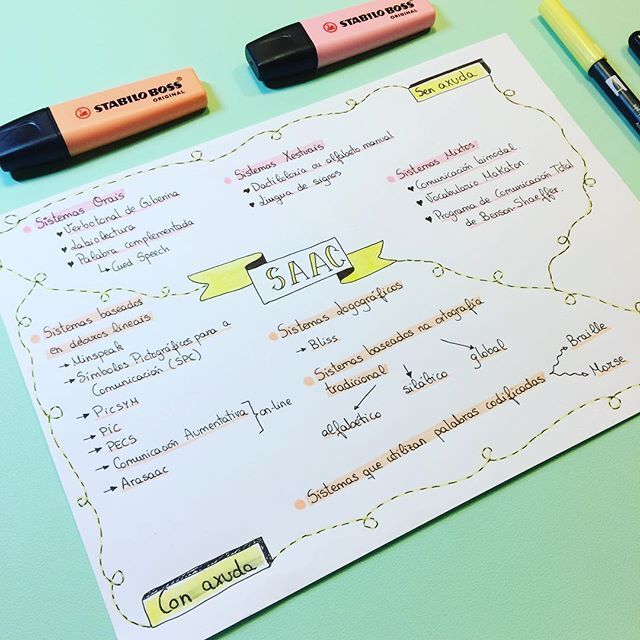 STABILO BOSS
ORIGINAL
STABILO BOSS
ORIGINAL
Sen axuda
Sistemas Orais
Verbotonal de Guberina
Labiolectura
Palabra complementada
Cued Speech
Sistemas Xestuais
Dactiloloxía ou alfabeto manual
Lingua de signos
Sistemas Mixtos
Comunicación bimodal.
Vocabulario Makaton.
Programa de Comunicación Total
de Benson-Shaeffer.
SAAC
Sistemas baseados
en debuxos lineais
Minspeak
Símbolos Pictográficos para a
Comunicación (SPC)
PICSYM
PIC
PECS
Comunicación Aumentativa
on-line
Arasaac
Sistemas logográficos
Bliss
Sistemas baseados na ortografía
tradicional
alfabético
silábico
global
Sistemas que utilizan palabras codificadas
Braille
Morse
Con axuda